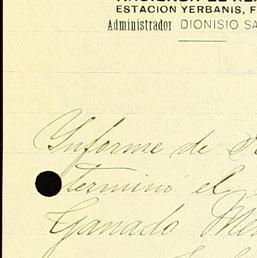 ESTACION YERBANIS, F
Administrador DIONISIO SA
Informe de
terminó el
Ganado Me